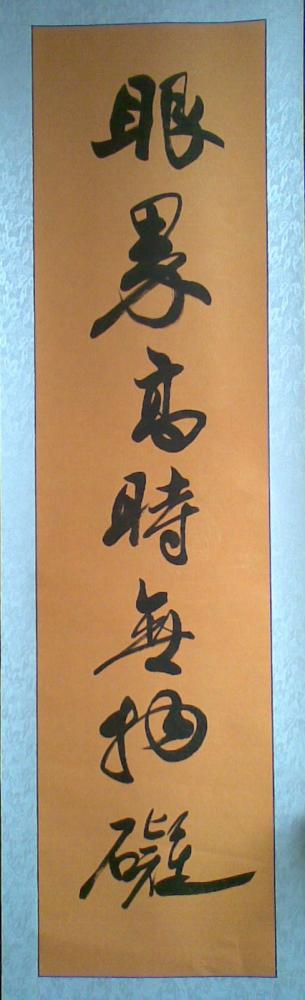 眼界高時無物礙